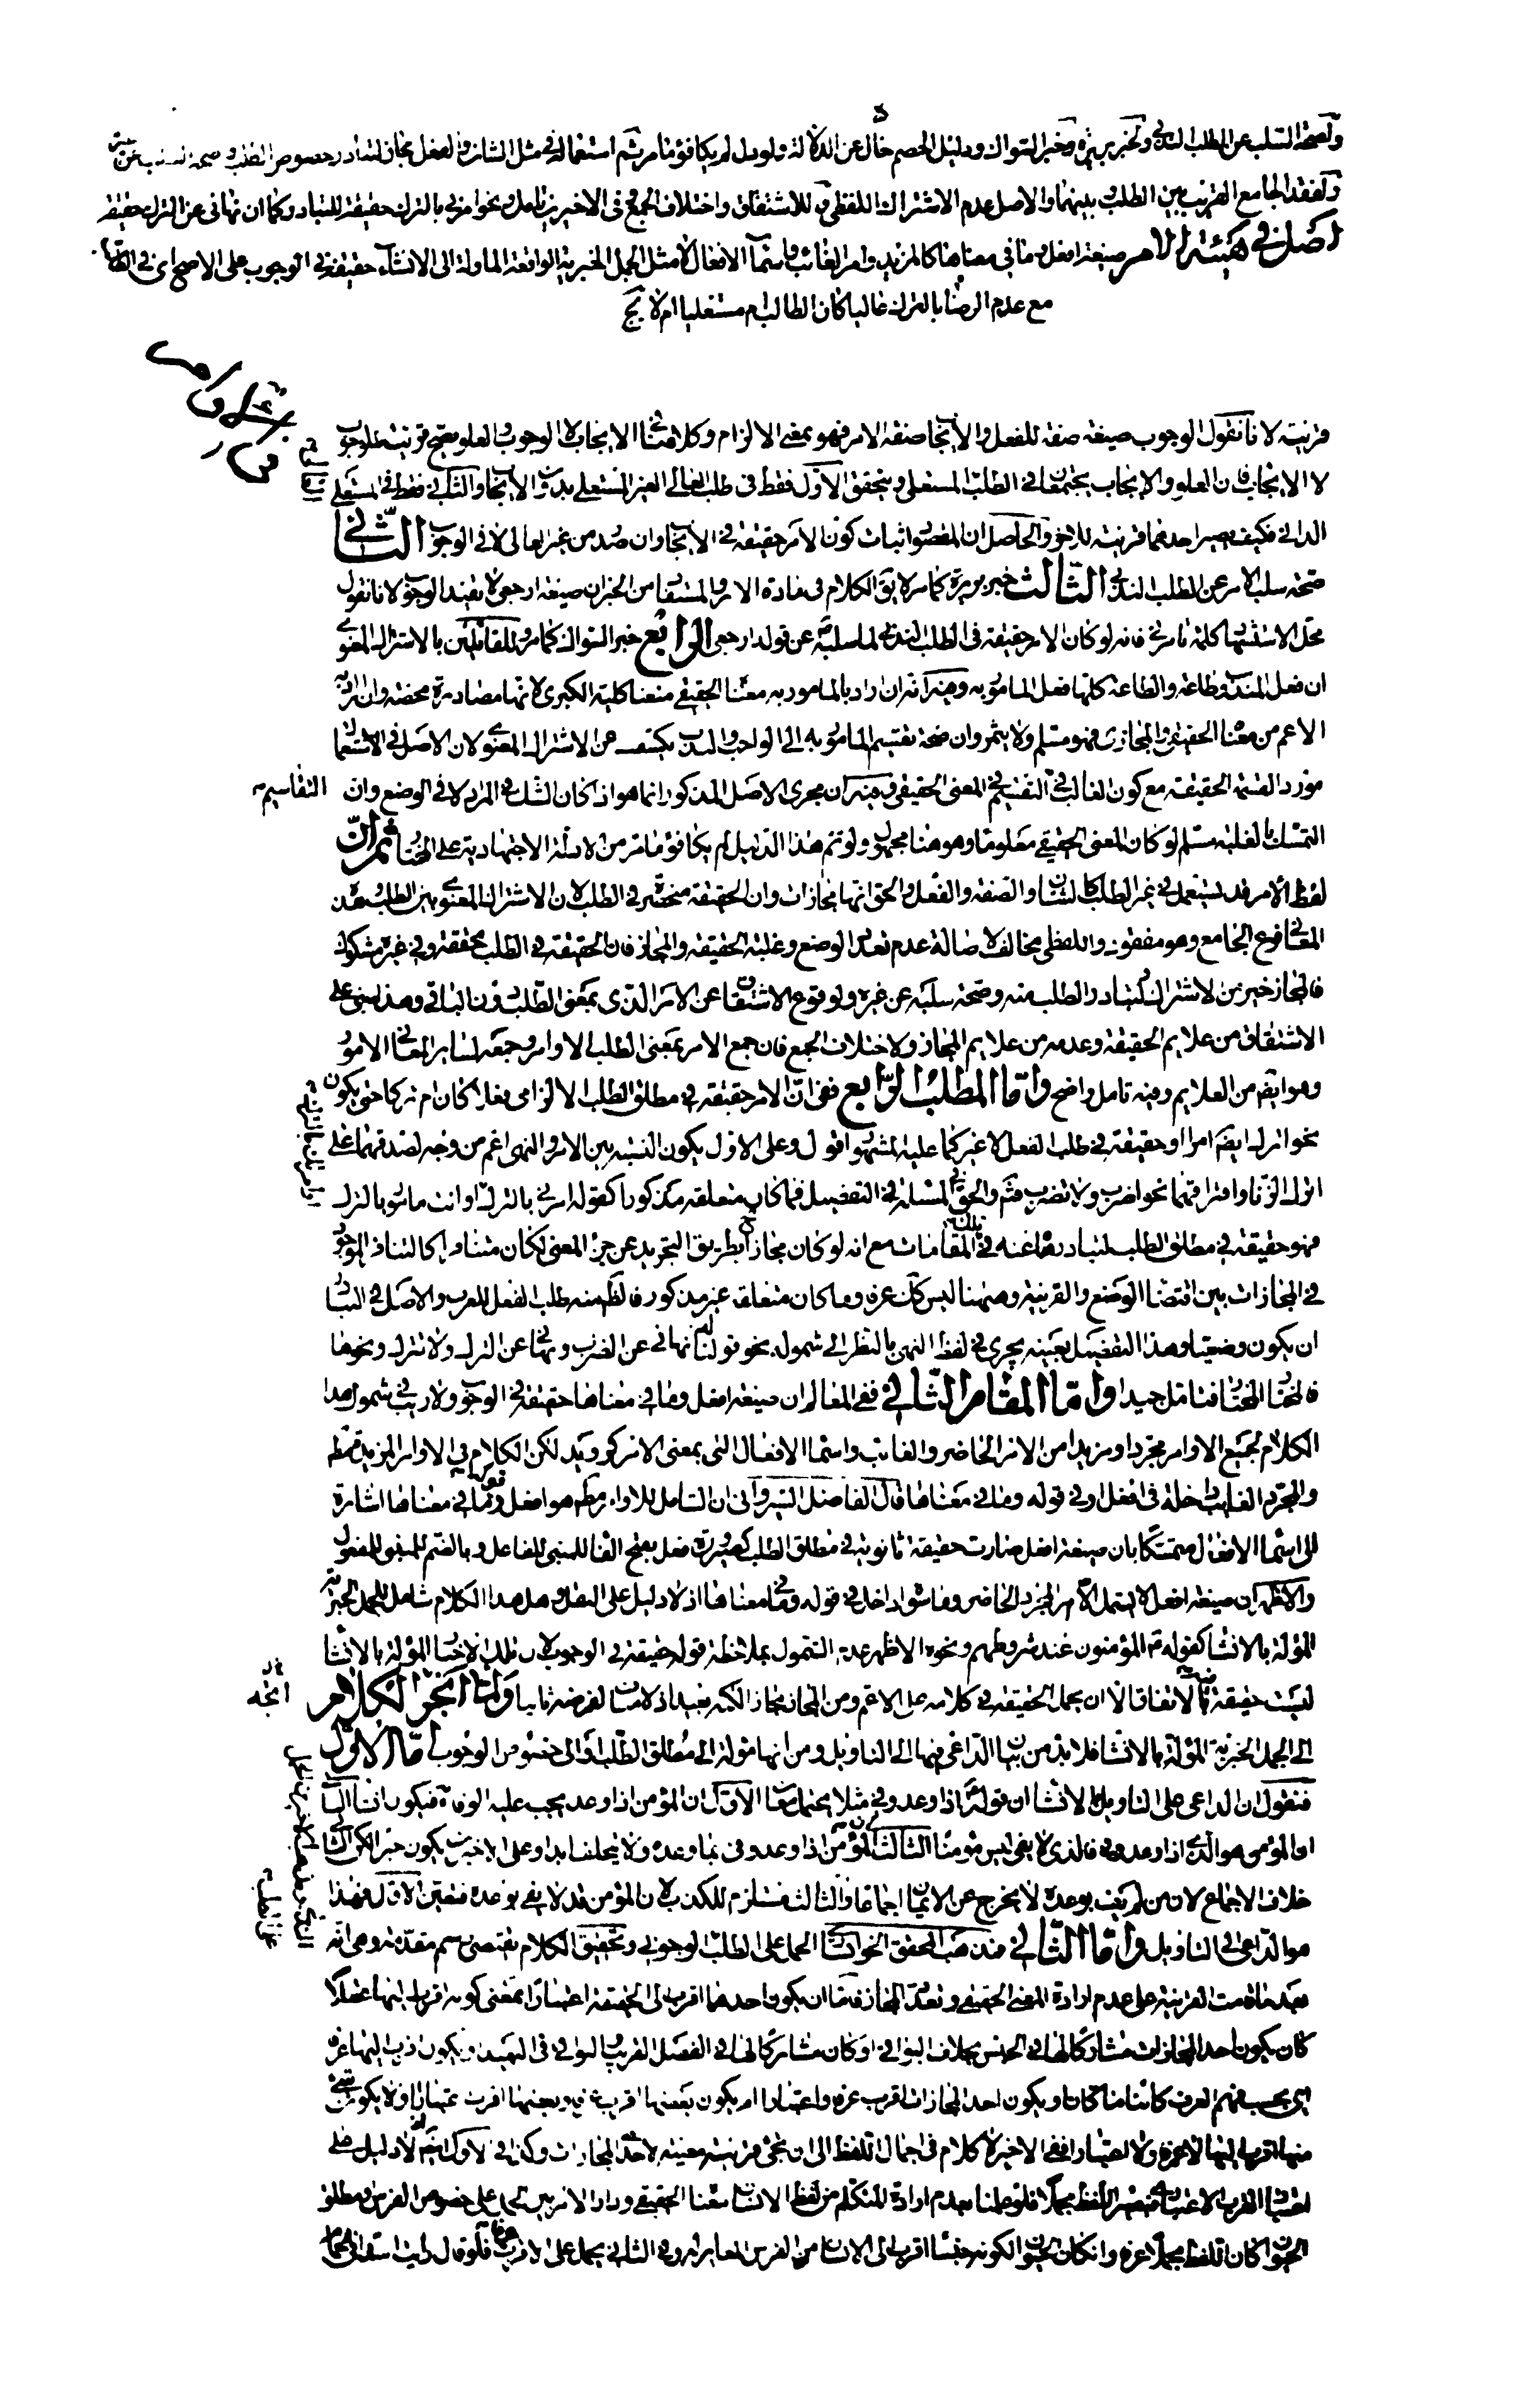 ولصحة السلب عن الطلب الندبي ولخبر بريرة وخبر السواك ودليل الخصم خال عن الدلالة ولو دل لم يكافؤ ما مر ثم استعماله في مثل الشان والفعل مجاز لتبادر خصوص الطلب وصحة السلب عن غيره
ولفقد الجامع القريب بين الطلب وبينهما والاصل عدم الاشتراك اللفظي وللاشتقاق واختلاف الجمع في الاخيرين تامل ونحو امرني بالترك حقيقة للتبادر كما ان نهاني عن الترك حقيقة
اصل في هيئة الامر صيغة افعل وما في معناها كالمزيد وامر الغائب واسماء الافعال لا مثل الجمل الخبرية الواقعة الماولة الى الانشاء حقيقة في الوجوب على الاصح اي في
مع عدم الرضا بالترك غالبا كان الطالب ام مستعليا ام لا
قرينة لانا نقول الوجوب صيغة صفة للفعل والايجاب صفة الامر فهو بمعنى الالزام وكلامنا في الايجاب لا الوجوب والعلو يصح قرينة للوجوب
لا الايجاب فان العلو والايجاب يجتمعان في الطلب المستعلي ويتحقق الاول فقط في طلب العالي الغير المستعلي بدون الايجاب والثاني فقط في المستعلي
الداني فكيف يصير احدهما قرينة للاخر والحاصل ان المقصود اثبات كون الامر حقيقة في الايجاب وان صدر من غير العالي لا في الوجوب الثاني
صحة سلب الامر عن الطلب الندبي الثالث خبر بريرة كما مر لا يق الكلام في مادة الامر والمستفاد من الخبر ان صيغة ارجعي لا تفيد الوجوب لانا نقول
محل الاستشهاد كلمة تامرني فانه لو كان الامر حقيقة في الطلب الندبي لما سلبه عن قوله ارجعي الرابع خبر السواك كما مر للقائلين بالاشتراك المعنوي
ان فعل المندوب طاعة والطاعة كلها فعل المامور به وفيه انه ان اراد بالمامور به معناه الحقيقي منعنا كلية الكبرى لانها مصادرة محضة وان اراد به
الاعم من معناه الحقيقي والمجازي فهو مسلم ولا يثمر وان صحة تقسيم المامور به الى الواجب والندب يكشف عن الاشتراك المعنوي لان الاصل في الاستعمال
مورد القسمة الحقيقة مع كون الغالب في التقسيم المعنى الحقيقي وفيه ان مجرى الاصل المذكور انما هو اذا كان الشك في المراد لا في الوضع وان
التقاسيم
التمسك بالغلبة مسلم لو كان المعنى الحقيقي معلوما وهو هنا مجهول ولو تم هذا الدليل لم يكافؤ ما مر من الادلة الاجتهادية على المختار ثم ان
لفظ الامر قد يستعمل في غير الطلب كالشان والصفة والفعل والحق انها مجازات وان الحقيقة منحصرة في الطلب لان الاشتراك المعنوي بين الطلب وهذه
المعاني فرع الجامع وهو مفقود واللفظي مخالف لاصالة عدم تعدد الوضع وغلبة الحقيقة والمجاز فان الحقيقة في الطلب محققة وفي غيره مشكوك
فالمجاز خير من الاشتراك لتبادر الطلب منه وصحة سلبه عن غيره ولوقوع الاشتقاق عن الامر الذي بمعنى الطلب دون البواقي وهذا مبني على
الاشتقاق من علايم الحقيقة وعدمه من علايم المجاز ولاختلاف الجمع فان جمع الامر بمعنى الطلب الاوامر وجمعه لساير المعاني الامور
وهو ايضم من العلايم وفيه تامل واضح واما المطلب الرابع ففي ان الامر حقيقة في مطلق الطلب الالزامي فعلا كان ام تركا حتى يكون
نحو اترك ايضم امرا او حقيقة في طلب الفعل لا غير كما عليه المشهور اقول وعلى الاول يكون النسبة بين الامر والنهي اعم من وجه لصدقهما على
اترك الزنا وافتراقهما نحو اضرب ولا تضرب فتم والحق في المسئلة التفصيل فما كان متعلقه مذكورا كقوله امرني بالترك او انت مامور بالترك
فهو حقيقة في مطلق الطلب لتبادرها عنه في تلك المقامات مع انه لو كان مجازا بطريق التجريد عن جزء المعنى لكان متنافرا كالتنافر الموجود
في المجازات بين اقتضاء الوضع والقرينة وههنا ليس كك عرفا وما كان متعلقه غير مذكور فالظهر منه طلب الفعل للعرف والاصل في التبادر
ان يكون وضعيا وهذا التفصيل بعينه يجري في لفظ النهي بالنظر الى شموله نحو قولنا نهاني عن الضرب ونهاني عن الترك ولا تترك ونحوها
فالمختار المختار فتامل جيدا واما المقام الثاني ففي المعالم ان صيغة افعل وما في معناها حقيقة في الوجوب ولا ريب في شمول هذا
الكلام لجميع الاوامر مجردا ومزيدا من الامر الحاضر والغائب واسماء الافعال التي بمعنى الامر كرويد لكن الكلام في الاوامر المزيد فيه
والمجرد الغايب داخلة في افعل او في قوله وما في معناها قال الفاضل الشيرواني ان الشامل للاوامر هو افعل وقوله وما في معناها اشارة
الى اسماء الافعال متمسكا بان صيغة افعل صارت حقيقة ثانوية في مطلق الطلب كصيرورة فعل بفتح الفاء للمبني للفاعل وبالضم للمبني للمفعول
والاظهر ان صيغة افعل لا يشمل الا امر المجرد الحاضر وما سواه داخل في قوله وما في معناها اذ لا دليل على النقل وهل هذا الكلام شامل للجمل الخبرية
المؤلة بالانشاء كقوله المؤمنون عند شروطهم ونحوه الاظهر عدم الشمول بملاحظة قوله حقيقة في الوجوب لان تلك الاخبار المؤلة بالانشاء
ليست حقيقة فيه بالاتفاق الا ان يحمل الحقيقة في كلامه على الاعم ومن المجاز مجاز الكنه بعيد واما انجر الكلام
الى الجمل الخبرية المؤلة بالانشاء فلا بد من بيان الداعي فيها الى التاويل ومن انها مؤلة الى مطلق الطلب او الى خصوص الوجوب اما الاول
فنقول ان الداعي على التاويل بالانشاء ان قوله اذا وعد وفى مثلا يحتمل معان الاول ان المؤمن اذا وعد يجب عليه الوفاء فيكون انشاء الثاني
ان المؤمن هو الذي اذا وعد وفى فالذي لا يفي ليس مؤمنا الثالث ان المؤمن اذا وعد وفى بما وعده ولا يتخلف ابدا وعلى الاخيرين يكون خبرا لكن الثاني
خلاف الاجماع لان من لم يف بوعده لا يخرج عن الايمان اجماعا والثالث مستلزم للكذب لان المؤمن قد لا يفي بوعده فتعين الاول فهذا
هو الداعي الى التاويل واما الثاني فذهب المحقق الخوانساري الحمل على الطلب الوجوبي وتحقيق الكلام يقتضي رسم مقدمة وهي انه
بعد ما قامت القرينة على عدم ارادة المعنى الحقيقي وتعدد المجاز فاما ان يكون احدهما اقرب الى الحقيقة اعتبارا بمعنى كونه اقرب اليها عقلا
كان يكون احد المجازات مشاركا لها في الجنس بخلاف البواقي او كان مشاركا لها في الفصل القريب والبواقي في البعيد او يكون اقرب اليها عرفا
اي بحسب فهم العرف كائنا ما كان او يكون احد المجازات اقرب عرفا واعتبارا او يكون بعضها اقرب عرفا وبعضها اقرب اعتبارا او لا يكون شيء
منها اقرب اليها لا عرفا ولا اعتبارا ففي الاخير لا كلام في اجمال اللفظ الى ان تجيء قرينة معينة لاحد المجازات وكذا في الاول ايضم اذ لا دليل على
اعتبار القرب الاعتباري فيصير اللفظ مجملا فلو علمنا بعدم ارادة المتكلم من لفظ الانسان معناه الحقيقي ودار الامر بين الحمل على خصوص الفرس ومطلق
الحيوان كان اللفظ مجملا عرفا وان كان الحيوان لكونه جنسا اقرب الى الانسان من الفرس اعتبارا وفي الثاني يحمل على الاقرب عرفا فلو قال رايت اسدا في الحمام